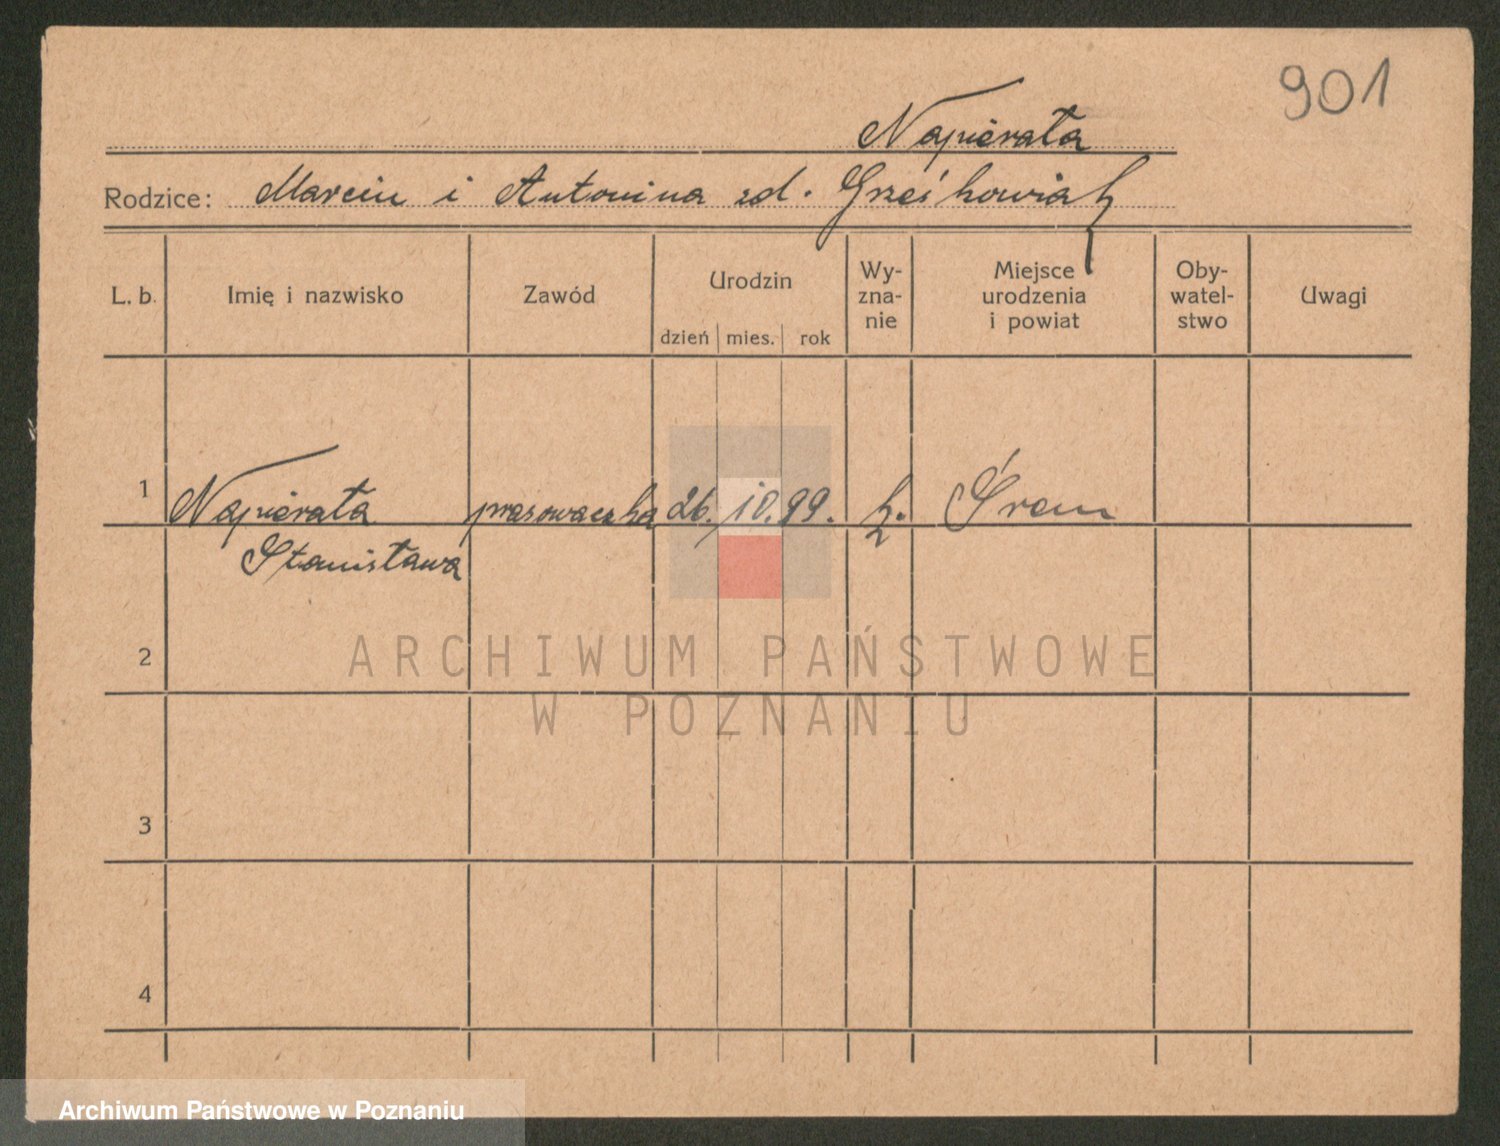 901
Napierała
Rodzice: Marcin i Antonina zd. Grześkowiak
L. b. Imię i nazwisko Zawód Urodzin Wy- Miejsce Oby- Uwagi
zna- urodzenia watel-
nie i powiat stwo
dzień mies. rok
1 Napierała prasowaczka 26. 10. 99. k. Śrem
Stanisława
2
ARCHIWUM PAŃSTWOWE
W POZNANIU
3
4
Archiwum Państwowe w Poznaniu